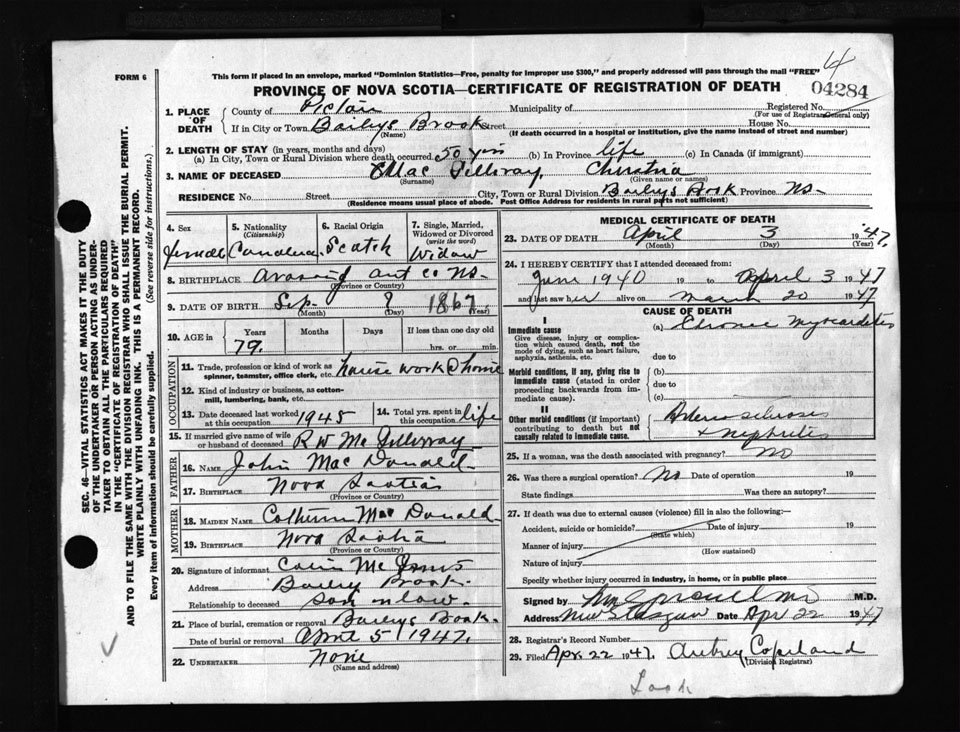 4
FORM 6
This form if placed in an envelope, marked "Dominion Statistics—Free, penalty for improper use $300," and properly addressed will pass through the mail "FREE"
04284
PROVINCE OF NOVA SCOTIA—CERTIFICATE OF REGISTRATION OF DEATH
SEC. 46—VITAL STATISTICS ACT MAKES IT THE DUTY
OF THE UNDERTAKER OR PERSON ACTING AS UNDER-
TAKER TO OBTAIN ALL THE PARTICULARS REQUIRED
IN THE "CERTIFICATE OF REGISTRATION OF DEATH"
AND TO FILE THE SAME WITH THE DIVISION REGISTRAR WHO SHALL ISSUE THE BURIAL PERMIT.
WRITE PLAINLY WITH UNFADING INK. THIS IS A PERMANENT RECORD.
Every item of information should be carefully supplied. (See reverse side for instructions.)
1. PLACE OF DEATH County of Pictou Municipality of Registered No.
(For use of Registrar General only)
If in City or Town Baileys Brook Street House No.
(Name) (If death occurred in a hospital or institution, give the name instead of street and number)
2. LENGTH OF STAY (in years, months and days)
(a) In City, Town or Rural Division where death occurred 50 yrs (b) In Province life (c) In Canada (if immigrant)
3. NAME OF DECEASED MacGillivray, Christina
(Surname) (Given name or names)
RESIDENCE No. Street City, Town or Rural Division Baileys Brook Province NS-
(Residence means usual place of abode. Post Office Address for residents in rural parts not sufficient)
4. Sex 5. Nationality (Citizenship) 6. Racial Origin 7. Single, Married, Widowed or Divorced (write the word)
Female Canadian Scotch Widow
8. BIRTHPLACE Ant Co NS-
(Province or Country)
9. DATE OF BIRTH Sep ? 1867
(Month) (Day) (Year)
10. AGE in Years Months Days If less than one day old
79. hrs. or min.
OCCUPATION
11. Trade, profession or kind of work as spinner, teamster, office clerk, etc. house work @ home
12. Kind of industry or business, as cotton-mill, lumbering, bank, etc.
13. Date deceased last worked at this occupation 1945 14. Total yrs. spent in this occupation life
15. If married give name of wife or husband of deceased R W McGillivray
FATHER
16. NAME John MacDonald
17. BIRTHPLACE Nova Scotia
(Province or Country)
MOTHER
18. MAIDEN NAME Catherine MacDonald
19. BIRTHPLACE Nova Scotia
(Province or Country)
20. Signature of informant McInnis
Address Bailey Brook
Relationship to deceased son in law
21. Place of burial, cremation or removal Baileys Brook
Date of burial or removal April 5 1947.
22. UNDERTAKER None
(Name and address)
MEDICAL CERTIFICATE OF DEATH
23. DATE OF DEATH April 3 1947.
(Month) (Day) (Year)
24. I HEREBY CERTIFY that I attended deceased from:
June 1940 19 to April 3 1947
and last saw her alive on March 20 1947
CAUSE OF DEATH
I
Immediate cause (a) Chronic Myocarditis
Give disease, injury or complication which caused death, not the mode of dying, such as heart failure, asphyxia, asthenia, etc.
due to
Morbid conditions, if any, giving rise to immediate cause (stated in order proceeding backwards from immediate cause). (b)
due to
(c)
II
Other morbid conditions (if important) contributing to death but not causally related to immediate cause. Arteriosclerosis
+ nephritis
25. If a woman, was the death associated with pregnancy? NO
26. Was there a surgical operation? No Date of operation 19
State findings Was there an autopsy?
27. If death was due to external causes (violence) fill in also the following:—
Accident, suicide or homicide? Date of injury 19
(State which)
Manner of injury
(How sustained)
Nature of injury
Specify whether injury occurred in industry, in home, or in public place
Signed by M.D.
Address New Glasgow Date Apr 22 1947
28. Registrar's Record Number
29. Filed Apr. 22 1947. Aubrey Copeland
(Division Registrar)
Look